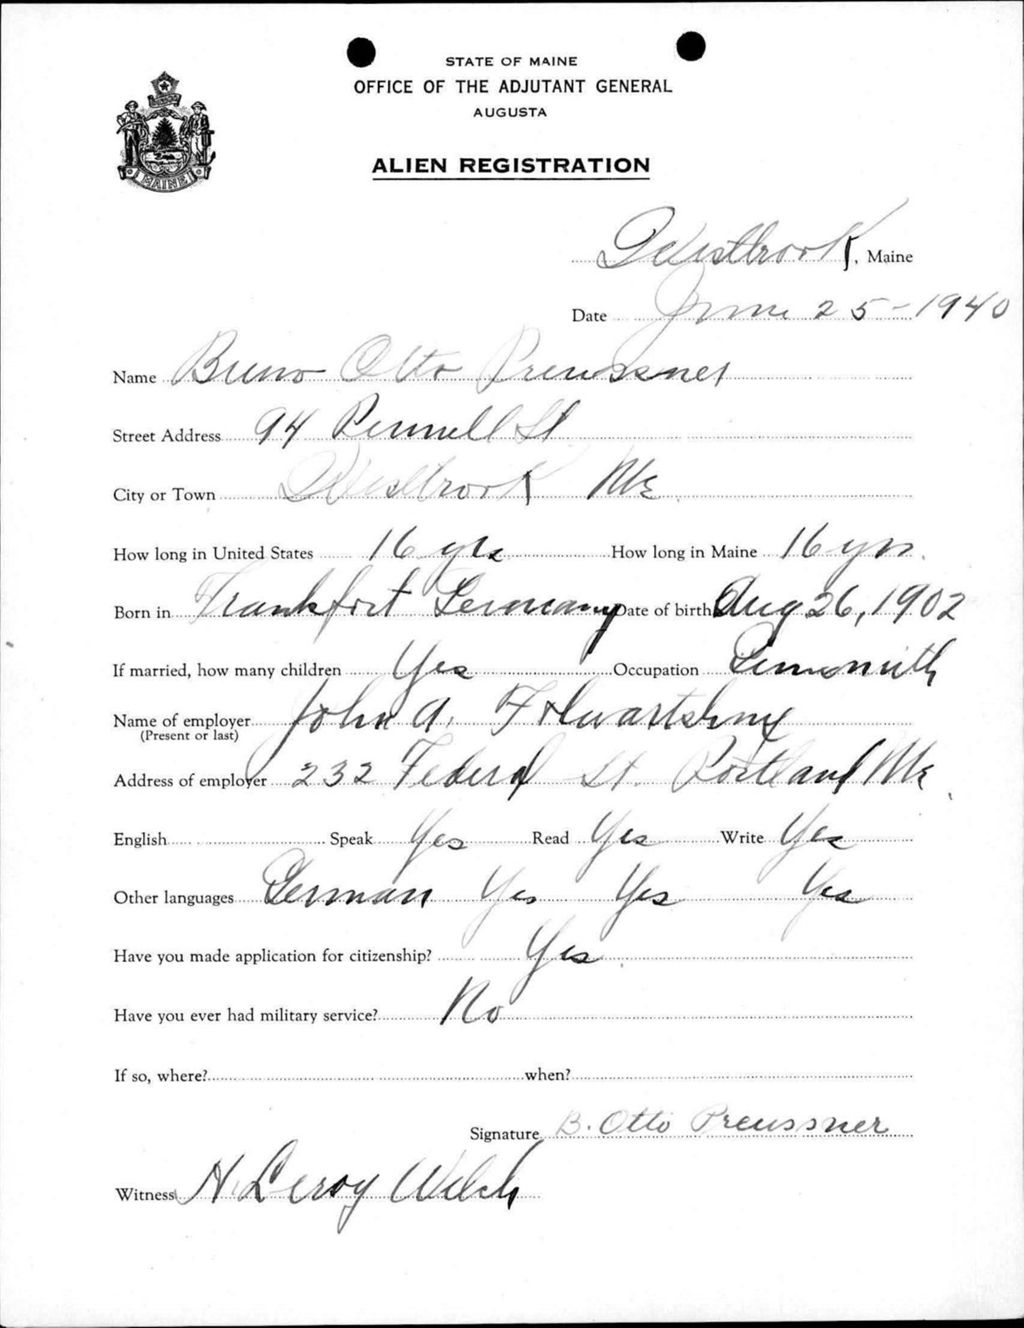 STATE OF MAINE
OFFICE OF THE ADJUTANT GENERAL
AUGUSTA
MAINE
ALIEN REGISTRATION
Westbrook, Maine
Date June 25-1940
Name Bruno Otto Preussner
Street Address 94 Pennell St
City or Town Westbrook Me
How long in United States 16 yrs How long in Maine 16 yrs.
Born in Frankfort Germany Date of birth Aug 26, 1902
If married, how many children Yes Occupation
Name of employer John A.
(Present or last)
Address of employer 232 Federal St. Portland Me
English Speak Yes Read Yes Write Yes
Other languages German Yes Yes Yes
Have you made application for citizenship? Yes
Have you ever had military service? No
If so, where? when?
Signature B. Otto Preussner
Witness H. Leroy Welch